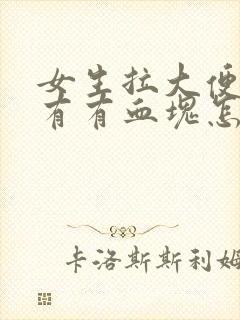 女生拉大便
有有血塊怎
卡洛斯斯利姆